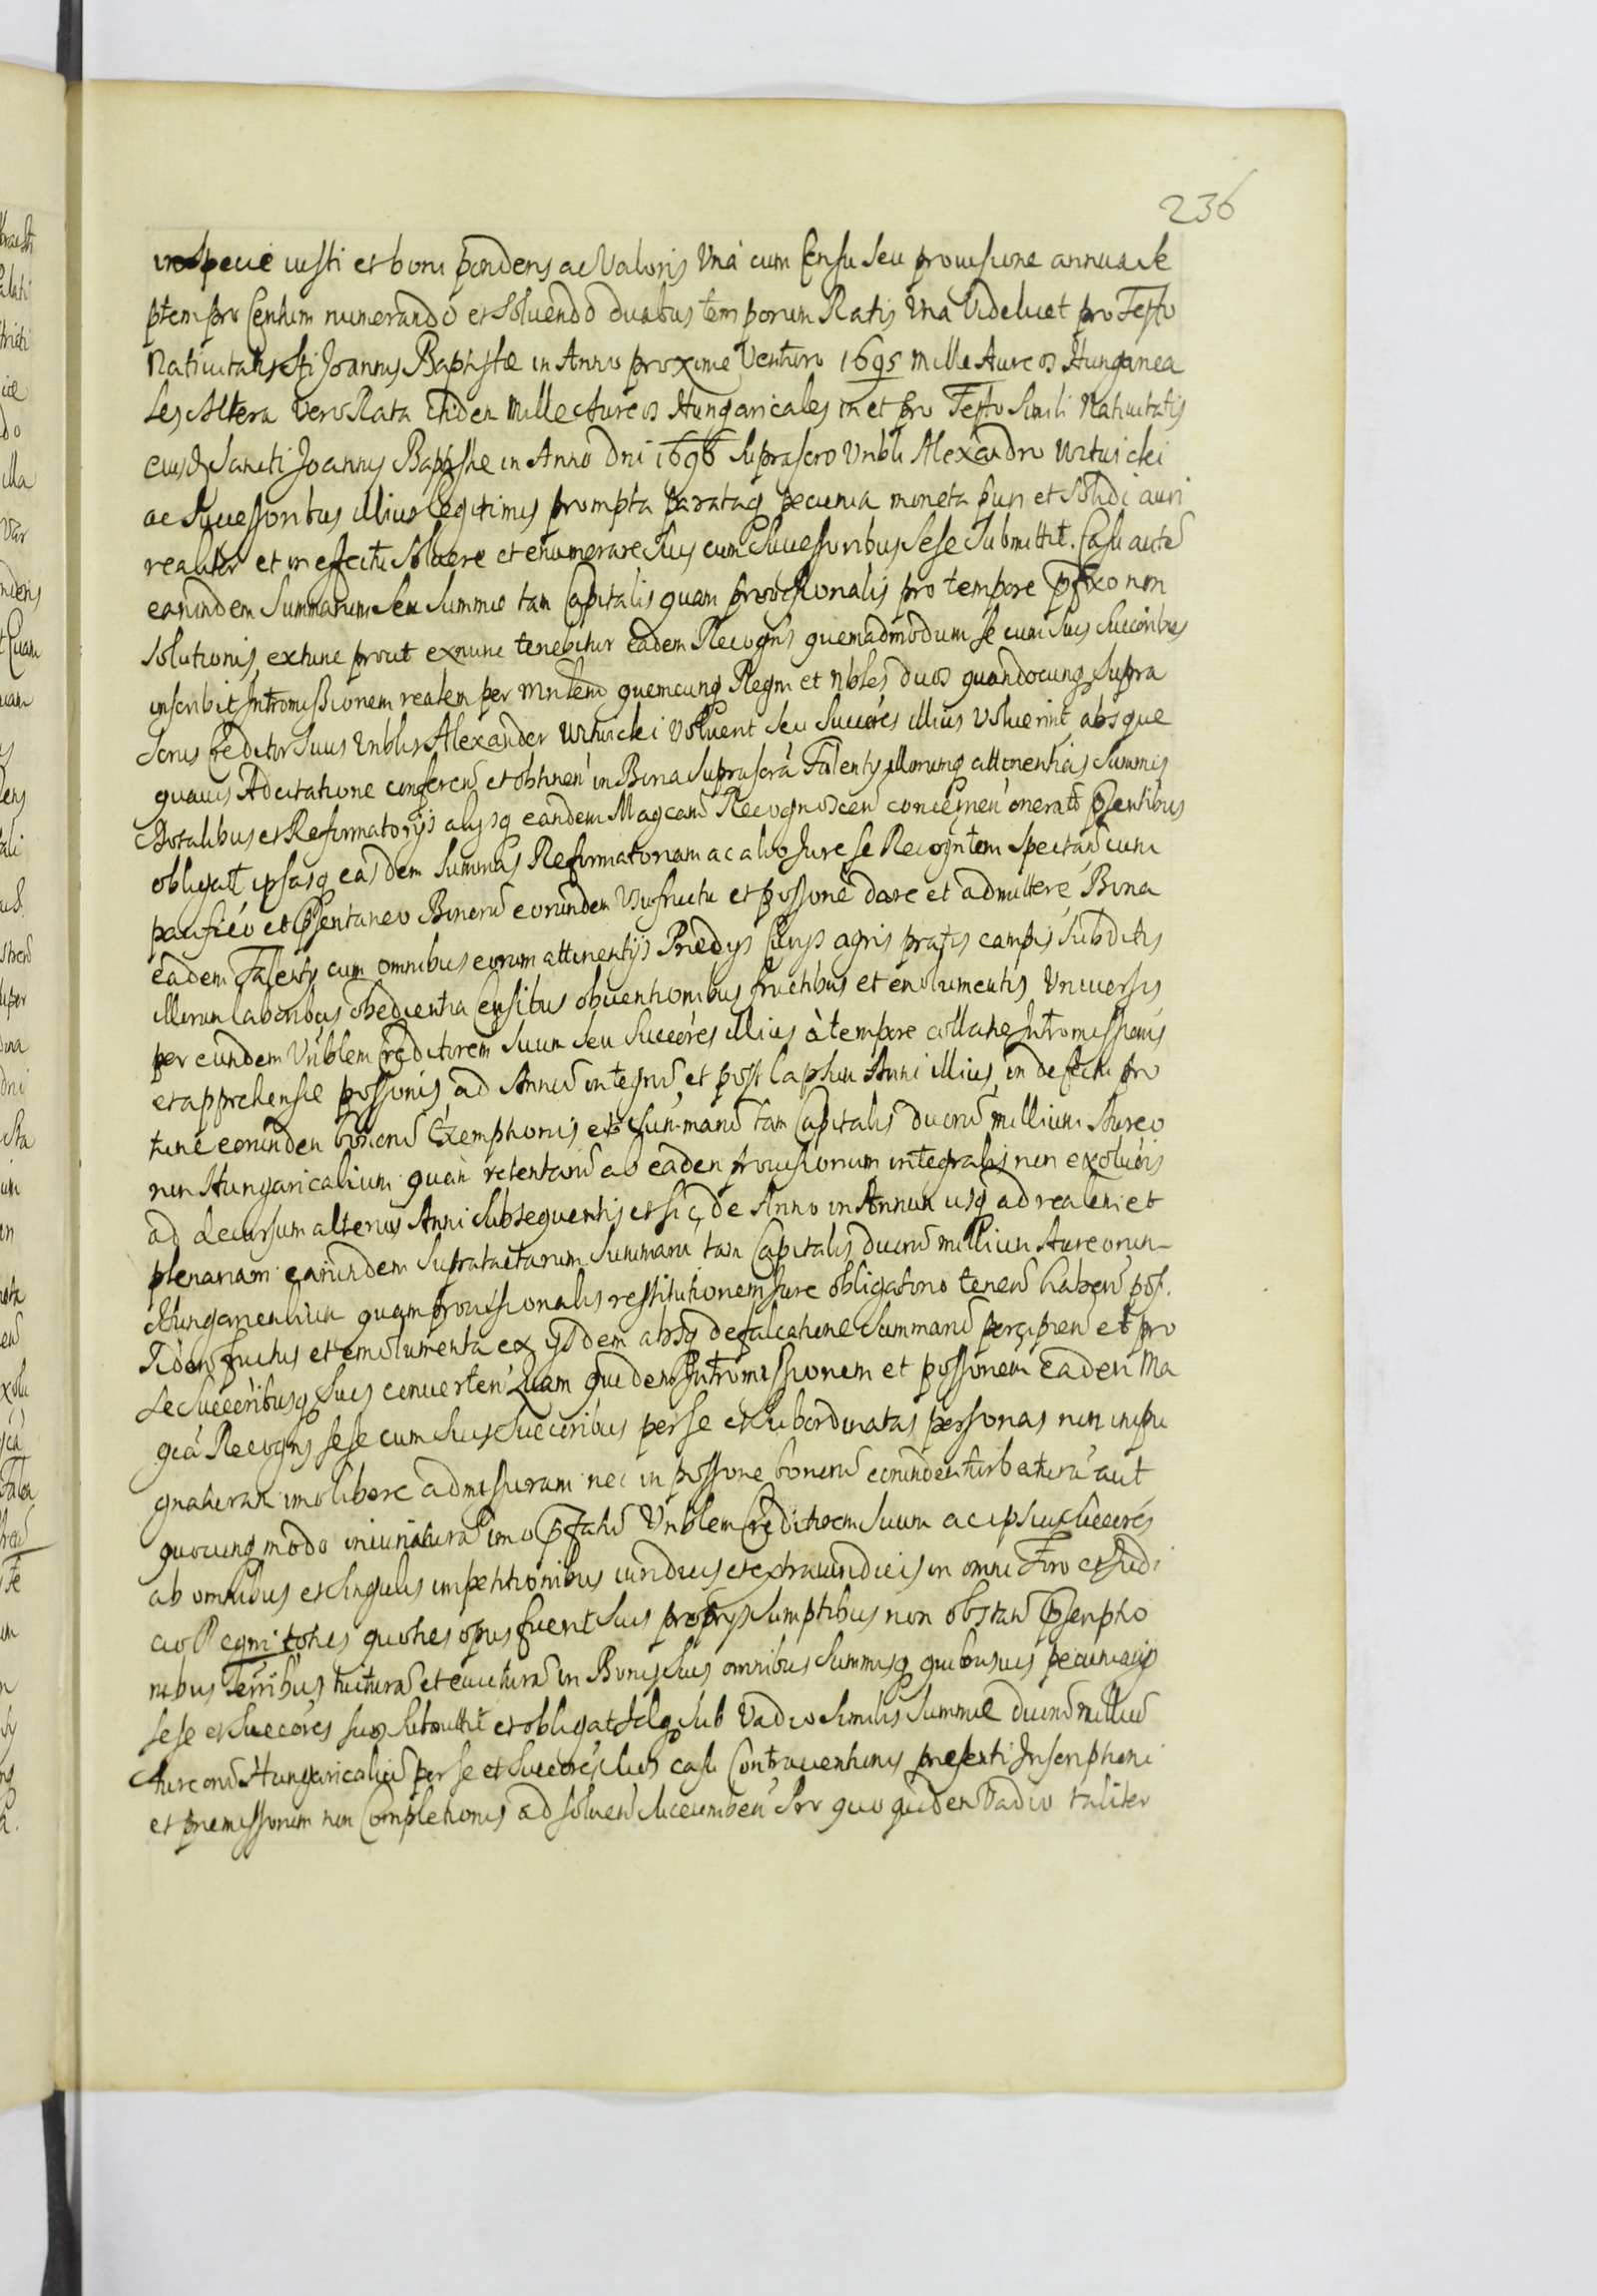 236
in specie iusti et boni ponderis ac Valoris Vna cum Censu seu prouisione annua se
ptem pro Centum numerando et soluendo duabus temporum Ratis Vna Videlicet pro Festo
Natiuitatis Sti Joannis Baptistæ in Anno proxime Venturo 1695 mille Aureos Hungarica
les Altera Vero Rata itidem Mille Aureos Hungaricales in et pro Festo Simili Natiuitatis
eiusd Sancti Joannis Baptistæ in Anno Dni 1696 suprascro Vrbli Alexandro
ac Successoribus illius legitimis prompta parataq pecunia moneta puri et Solidi auri
realiter et in effectu Soluere et enumerare suis cum Successoribus sese Submittit. Casu autē
earundem Summarum seu Summæ tam Capitalis quam prouisionalis pro tempore pfixo non
solutionis, extunc prout exnunc tenebitur eadem Recogns quemadmodum se cum suis Succoribus
inscribit Intromissionem realem per Mnlem quemcunq Regni et Nbles duos quandocunq supra
scrus Creditor Suus Vnblis Alexander Voluerit seu Succores illius Voluerint absque
quauis Adcitatione conferen et obtinen in Bona suprascra Falenty illorumq attinentias Summis
Dotalibus et Reformatorijs alysq eandem Magcam Recognoscen concernen onerat psentibus
obligat ipsasq easdem Summas Reformatoriam ac alio Jure se Recogntem spectan cum
pacifico et psentaneo Bonorū eorundem Vsufructu et possone dare et admittere Bona
eadem Falenty cum omnibus eorum attinentijs Prædys agris pratis campis Subditis
illorum laboribus obedientia Censibus obuentionibus fructibus et emolumentis Vniuersis
per eundem Vnblem Creditorem Suum seu Succores illius à tempore collatæ Intromissionis
et apprehensæ possonis ad Annū integrū et post lapsum Anni illius in defectu pro
tunc eorundem bonorū Exemptionis et Summarū tam Capitalis duorū millium Aureo
rum Hungaricalium quam retentarū ab eadem prouisionum integralis non exolutis
ad decursum alterius Anni Subsequentis et sic de Anno in Annum usq ad realem et
plenariam earundem Supratactarum Summarū tam Capitalis duorū millium Aureorum
Hungaricalium quam prouisionalis restitutionem Jure obligatorio tenen haben pos
siden fructus et emolumenta ex ijsdem absq defalcatione Summarū percipien et pro
se Succoribusq suis conuerten Quam quidem Intromissionem et possonem eadem Ma
gca Recogns sese cum suis Succoribus per se et Subordinatas personas non impu
gnaturam imo libere admissuram nec in possone bonorū eorundem turbaturā aut
quocunq modo iniuriaturā imo pfatū Vnblem Creditorem Suum ac ipsius Succores
ab omnibus et singulis impetitionibus iuridicis et extraiuridicis in omni Foro et Judi
cio Regni toties quoties opus fuerit suis proprys Sumptibus non obstan pscriptio
nibus Terribus tuiturā et euicturā in Bonis suis omnibus Summisq quibusuis pecuniarijs
sese et Succores suos Submittit et obligat Idq sub Vadio Similis Summæ duorū milliū
Aureorū Hungaricaliū per se et Succores suos casu Contrauentionis presenti Inscriptioni
et premissorum non Completionis ad soluen succumben Pro quo quidem Vadio taliter